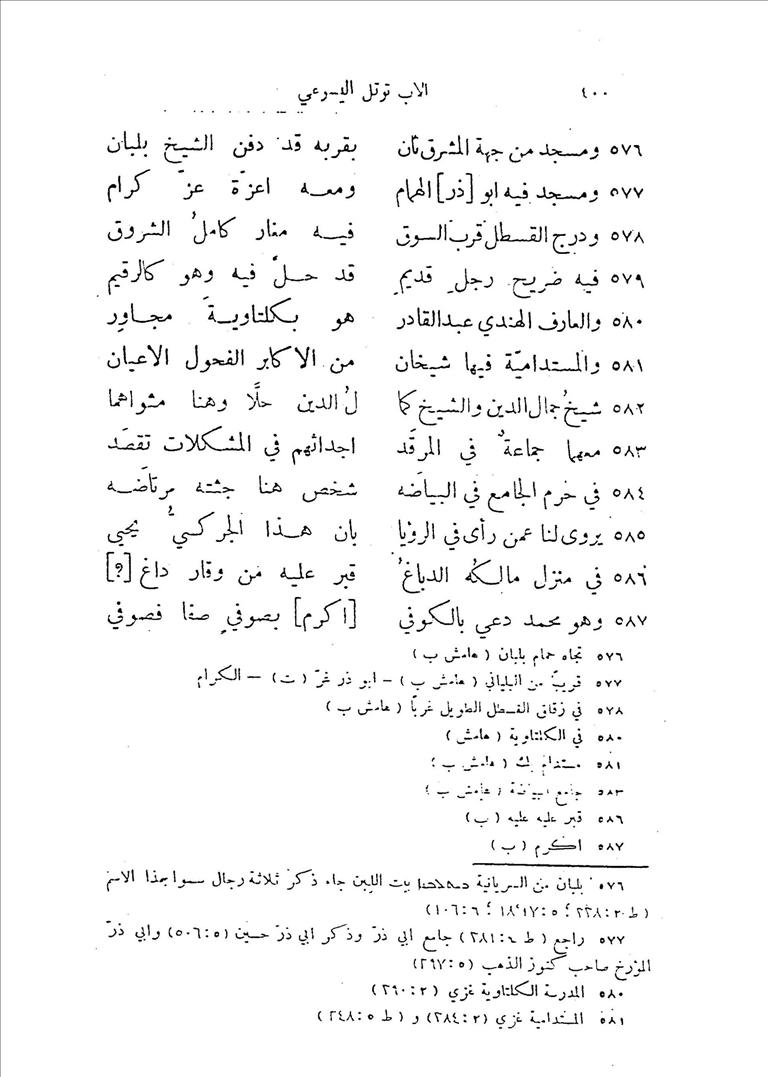 ٤٠٠ الاب توتل اليسوعي
٥٧٦ ومسجد من جهة المشرق ثان بقربه قد دفن الشيخ بلبان
٥٧٧ ومسجد فيه ابو [ذر] الهمام ومعه اعزّة عزّ كرام
٥٧٨ ودرج القسطل قرب السوق فيه مغار كاملُ الشروق
٥٧٩ فيه ضريح رجلٍ قديمٍ قد حلَّ فيه وهو كالرقيم
٥٨٠ والعارف الهندي عبدالقادر هو بكلتاوية مجاور
٥٨١ والمستداميّة فيها شيخان من الاكابر الفحول الاعيان
٥٨٢ شيخُ جمال الدين والشيخ كما لُ الدين حلّا وهنا مثواهما
٥٨٣ معهما جماعةٌ في المرقَد اجداثهم في المشكلات تقصَد
٥٨٤ في حرم الجامع في البياضه شخص هنا جثته مرتاضه
٥٨٥ يروى لنا عمن رأى في الرؤيا بان هذا الجركسيُّ يحيي
٥٨٦ في منزل مالكه الدباغُ قبر عليه من وقار داغ [؟]
٥٨٧ وهو محمد دعي بالكوفي [اكرم] بصوفيٍ صفا فصوفي
٥٧٦ تجاه حمام بلبان (هامش ب)
٥٧٧ قريبًا من البلباني (هامش ب) – ابو ذر غرّ (ت) – الكرام
٥٧٨ في زقاق القسطل الطويل غربًا (هامش ب)
٥٨٠ في الكلتاوية (هامش)
٥٨١ مستدام بك (هامش ب)
٥٨٣ جامع البياضة (هامش ب)
٥٨٦ قبر عليه عليه (ب)
٥٨٧ اكرم (ب)
٥٧٦ بلبان من السريانية بيت اللبن جاء ذكر ثلاثة رجال سموا بهذا الاسم
(ط ٢: ٢٢٨؛ ٥: ١٧، ١٨؛ ٦: ١٠٦)
٥٧٧ راجع (ط ٤: ٢٨١) جامع ابي ذرّ وذكر ابي ذرّ حسين (٥: ٥٠٦) وابي ذرّ
المؤرخ صاحب كنوز الذهب (٥: ٢٩٧)
٥٨٠ المدرسة الكلتاوية غزي (٢: ٢٦٠)
٥٨١ المستدامية غزي (٢: ٢٨٤) و (ط ٥: ٢٤٨)